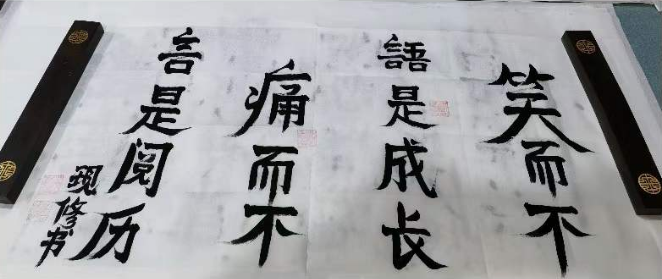 笑而不
語是成长
痛而不
言是阅历
砚修书